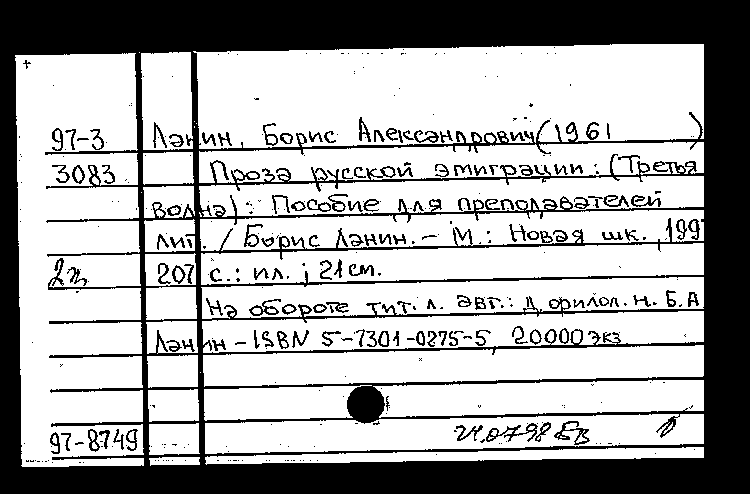 97-3 Ланин, Борис Александрович (1961 )
3083 Проза русской эмиграции: (Третья
волна): Пособие для преподавателей
лит. / Борис Ланин. - М.: Новая шк., 199
2э 207 с.: ил.; 21 см.
На обороте тит. л. авт.: Д. филол. н. Б.А.
Ланин - ISBN 5-7301-0275-5, 20000 экз
97-8749 21.07.98